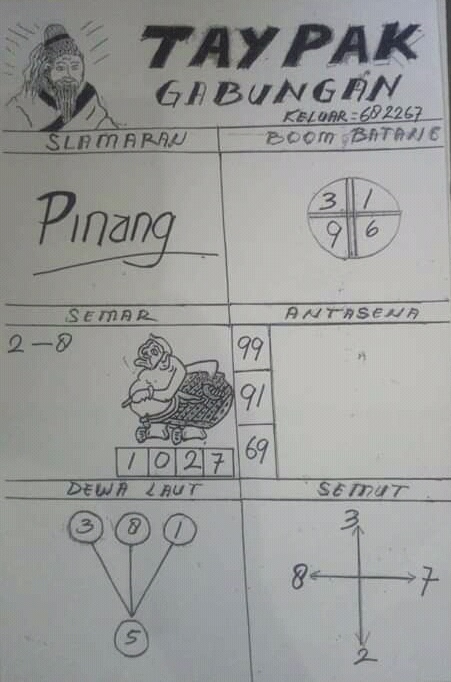 TAYPAK
GABUNGAN
KELUAR=682267
SLAMARAN
BOOM BATANG
Pinang
3 1
9 6
SEMAR
ANTASENA
2-8
99
91
69
1 0 2 7
DEWA LAUT
SEMUT
3 8 1
5
3
8 7
2